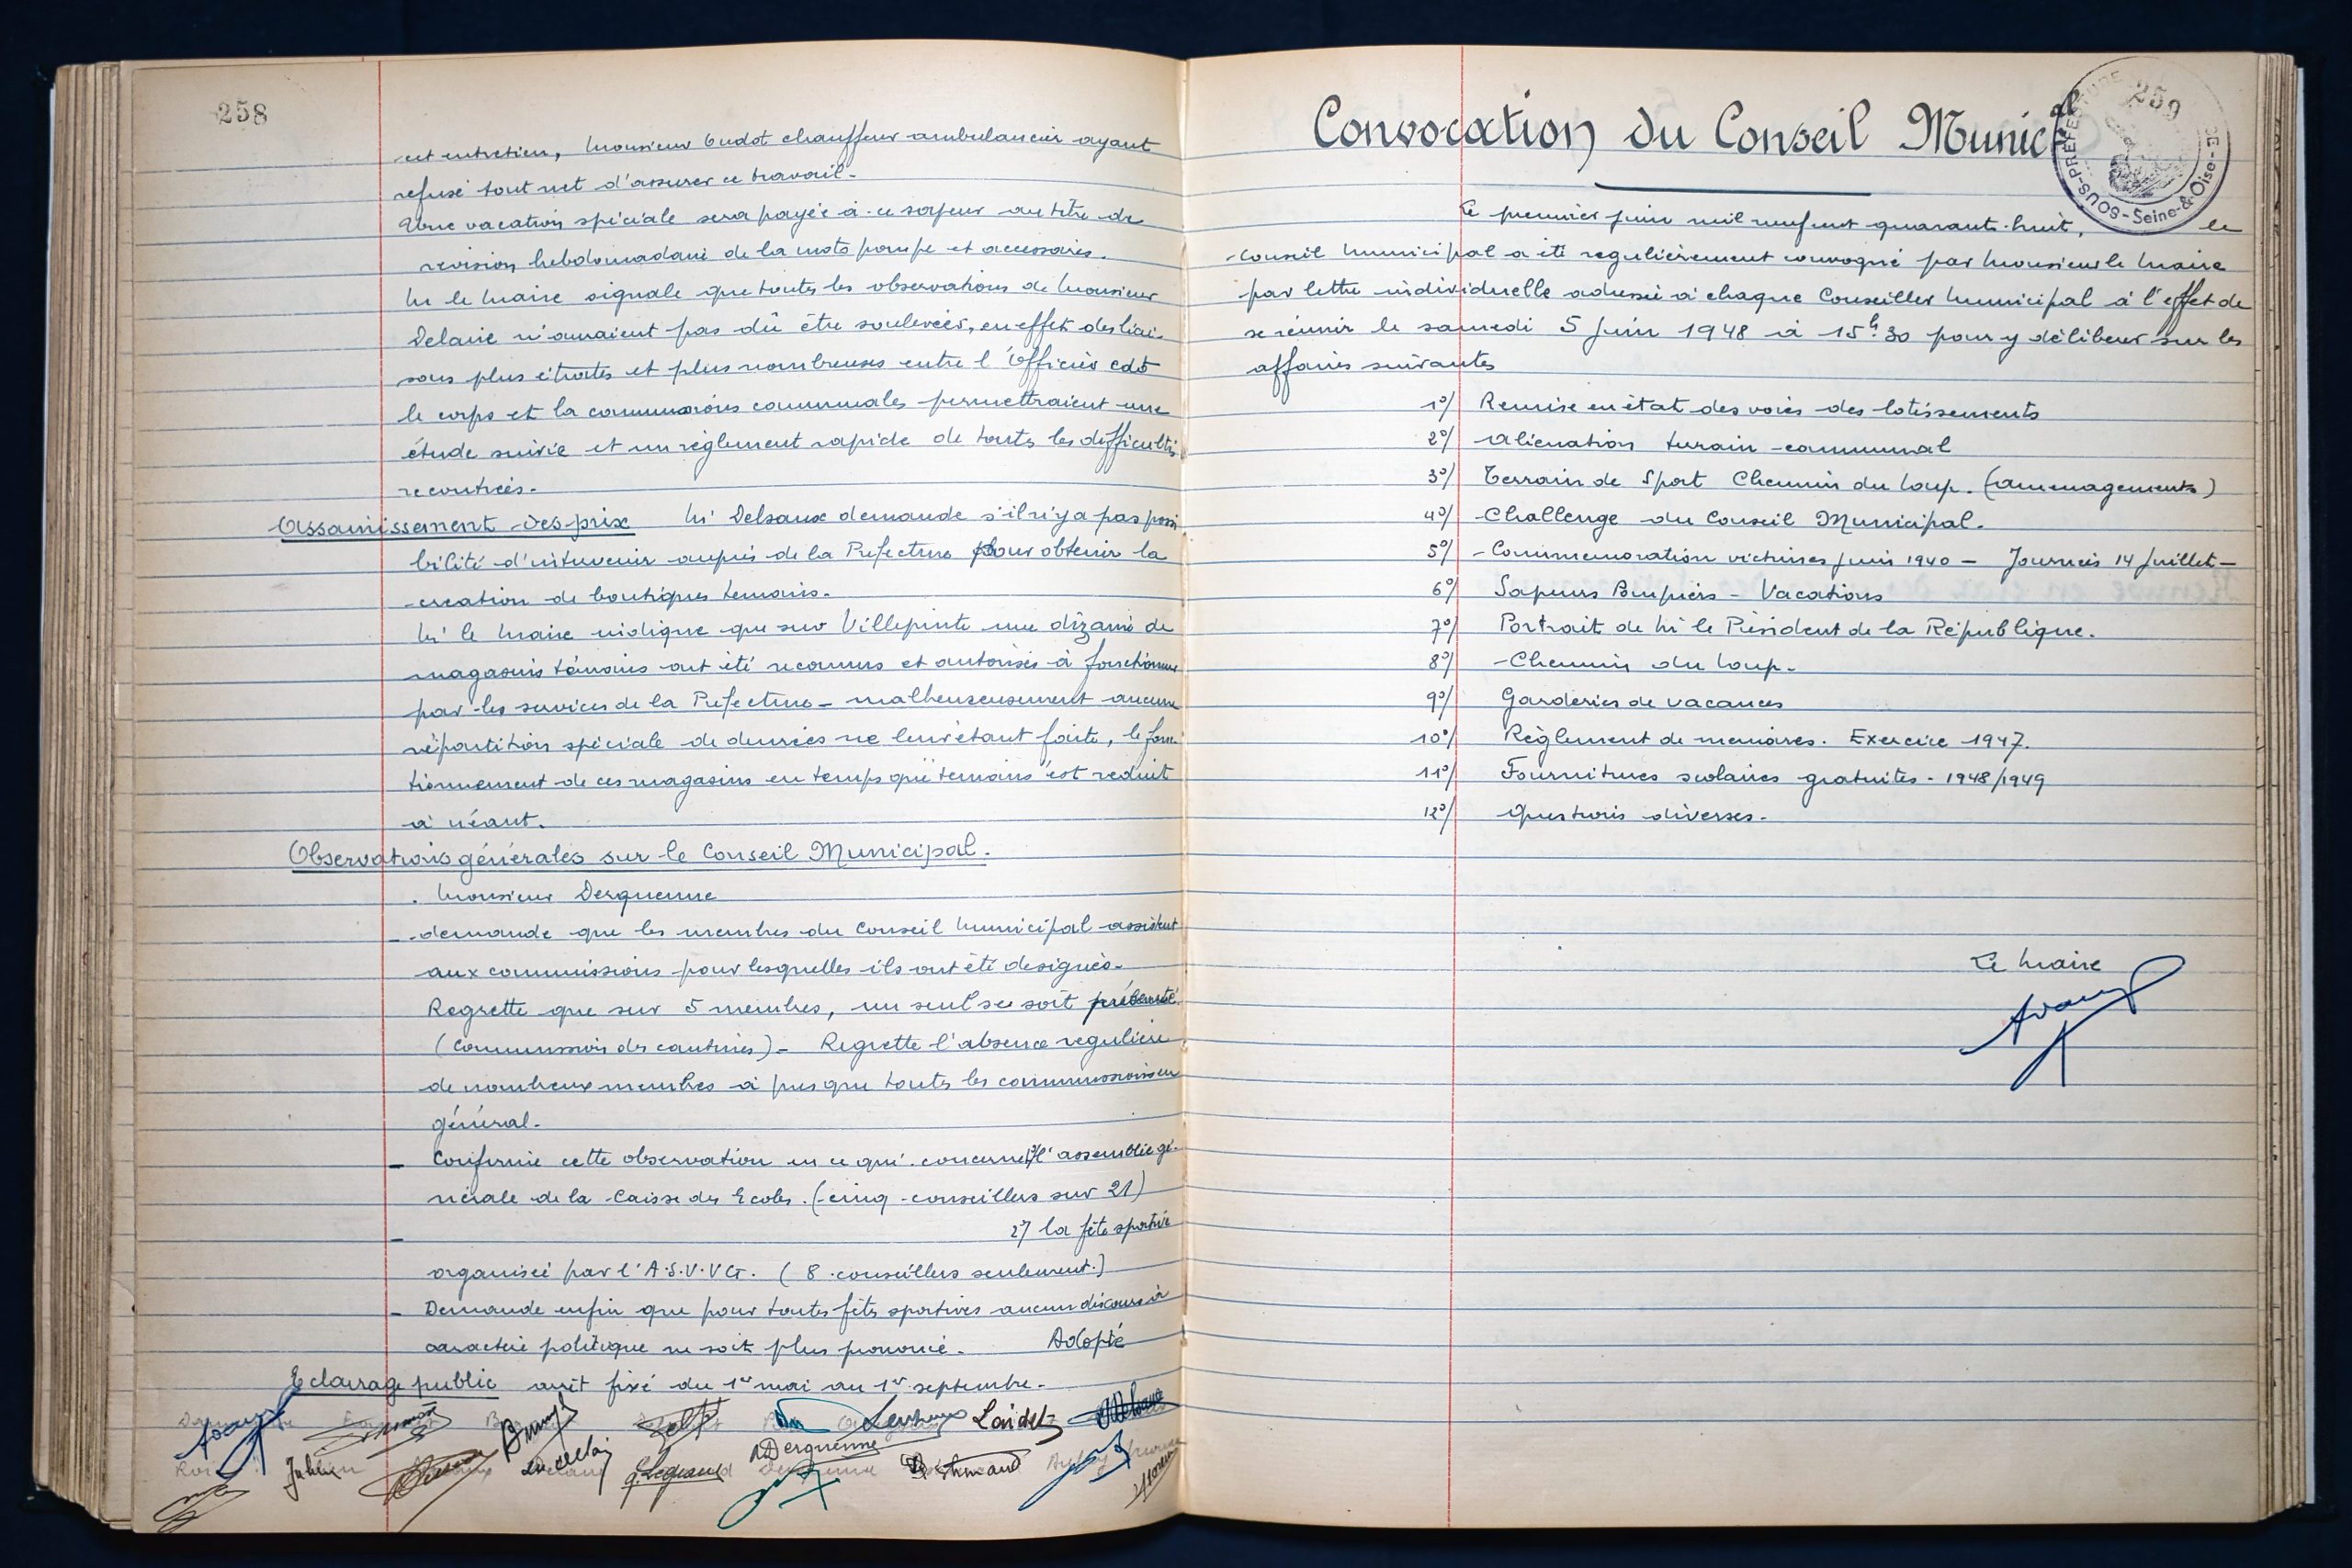 258
cet entretien, Monsieur Oudot chauffeur ambulancier ayant
refusé tout net d'assurer ce travail.
Une vacation spéciale sera payée à ce sapeur au titre de
revision hebdomadaire de la moto pompe et accessoires.
Mr le Maire signale que toutes les observations de Monsieur
Delarie n'auraient pas dû être soulevées, en effet des liai-
sons plus étroites et plus nombreuses entre l'Officier cdt
le corps et la commissions communales permettraient une
étude suivie et un règlement rapide de toutes les difficultés
recontrées.
Assainissement des prix Mr Delsaux demande s'il n'y a pas possi
bilité d'intervenir auprès de la Préfecture pour obtenir la
création de boutiques temoins.
Mr le Maire indique que sur Villepinte une dizaine de
magasins témoins ont été reconnus et autorisés à fonctionner
par les services de la Prefecture - malheureusement aucune
répartition spéciale de denrées ne leur étant faite, le fonc
tionnement de ces magasins en temps que "temoins" est reduit
à néant.
Observations générales sur le Conseil Municipal.
Monsieur Derquenne
- demande que les membres du Conseil Municipal assistent
aux commissions pour lesquelles ils ont été designés.
Regrette que sur 5 membres, un seul se soit présenté
(Commission des cantines) - Regrette l'absence regulière
de nombreux membres à presque toutes les commissions en
général.
- Confirme cette observation en ce qui concerne 1°/ l'assemblée gé-
nérale de la Caisse des Ecoles. (cinq conseillers sur 21)
- 2°/ la fête sportive
organisée par l'A.S.V.V.G. (8 conseillers seulement.)
- Demande enfin que pour toutes fêtes sportives aucun discours à
caractère politique ne soit plus prononcé. Adopté
Eclairage public arrêt fixé du 1er mai au 1er septembre.
Laidet
Derquenne
Julien
Legrand
259
Convocation du Conseil Municipal
SOUS-PREFECTURE
Seine-&-Oise
Le premier juin mil neuf cent quarante huit, le
Conseil Municipal a été regulièrement convoqué par Monsieur le Maire
par lettre individuelle adressée à chaque Conseiller Municipal à l'effet de
se réunir le samedi 5 Juin 1948 à 15h.30 pour y délibérer sur les
affaires suivantes
1°/ Remise en état des voies des lotissements
2°/ Alienation terrain communal
3°/ Terrain de Sport Chemin du Loup. (amenagements)
4°/ Challenge du Conseil Municipal.
5°/ Commemoration victimes Juin 1940 - Journées 14 Juillet -
6°/ Sapeurs Pompiers - Vacations
7°/ Portrait de Mr le Président de la République.
8°/ Chemin du Loup.
9°/ Garderies de vacances
10°/ Règlement de memoires. Exercice 1947.
11°/ Fournitures scolaires gratuites - 1948/1949
12°/ Questions diverses.
Le Maire